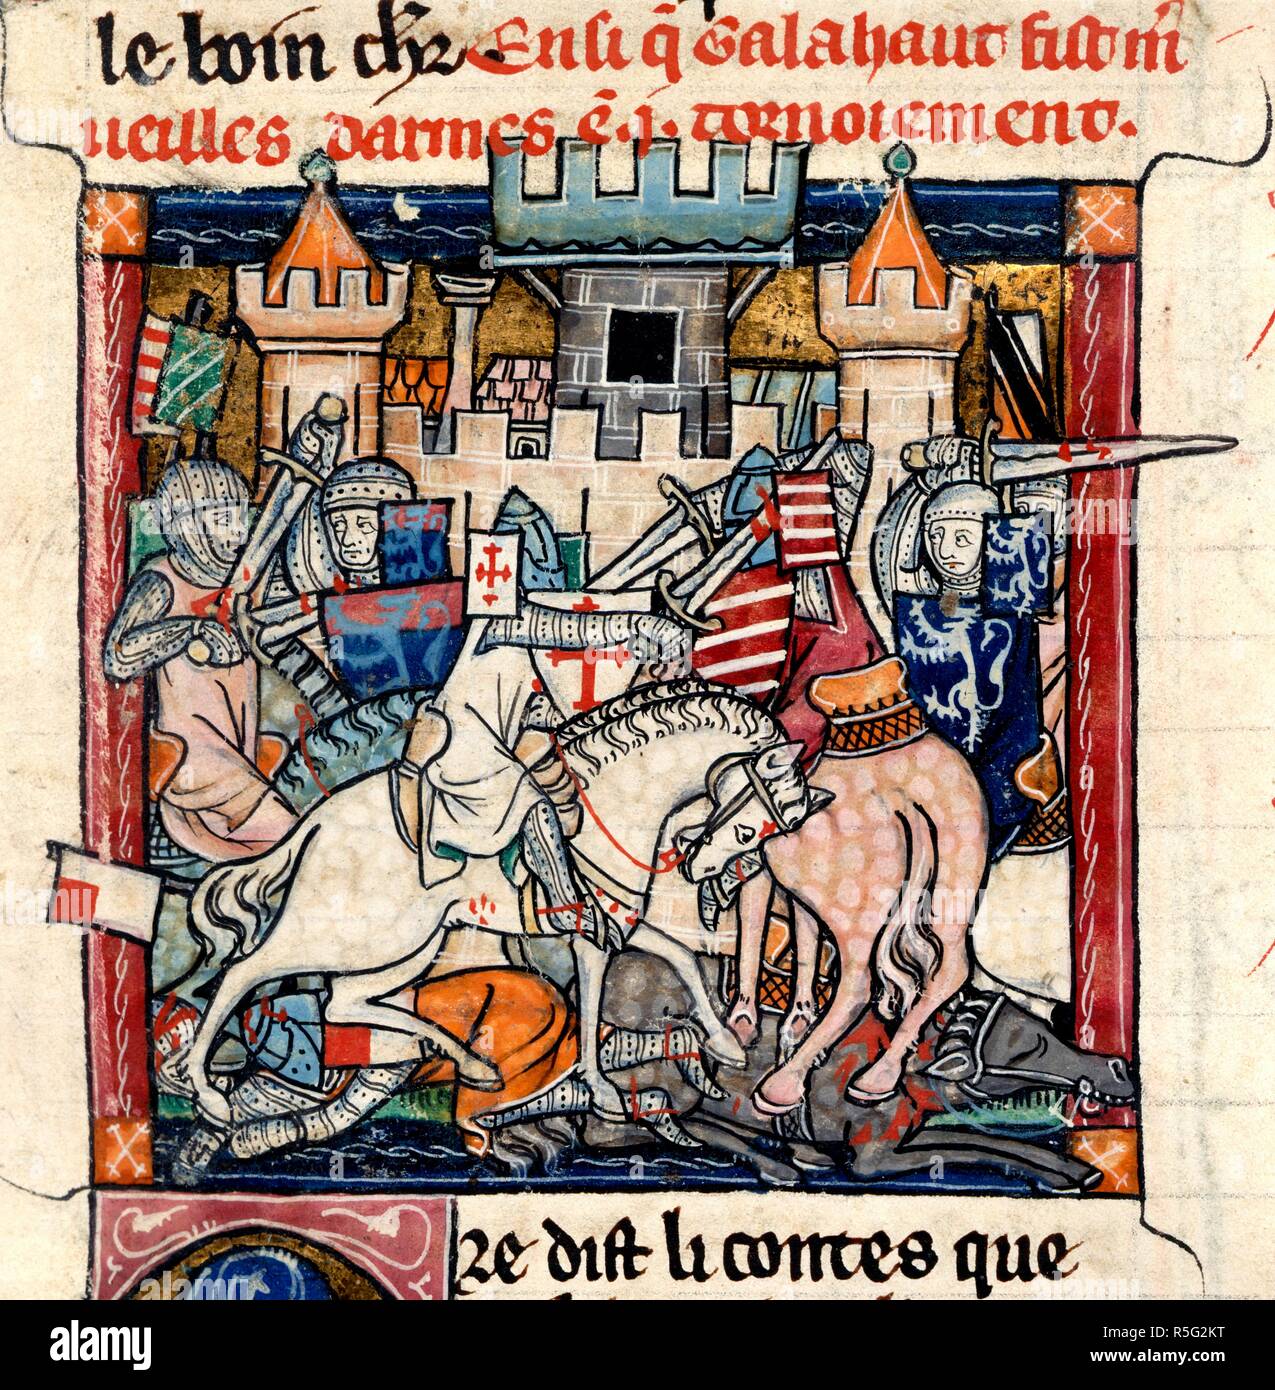 le boin chr Ensi q̃ Galahaut fist m̃
ueilles darmes ẽ .j. tornoiement.
Re dist li contes que
alamy
Image ID: R5G2KT
www.alamy.com